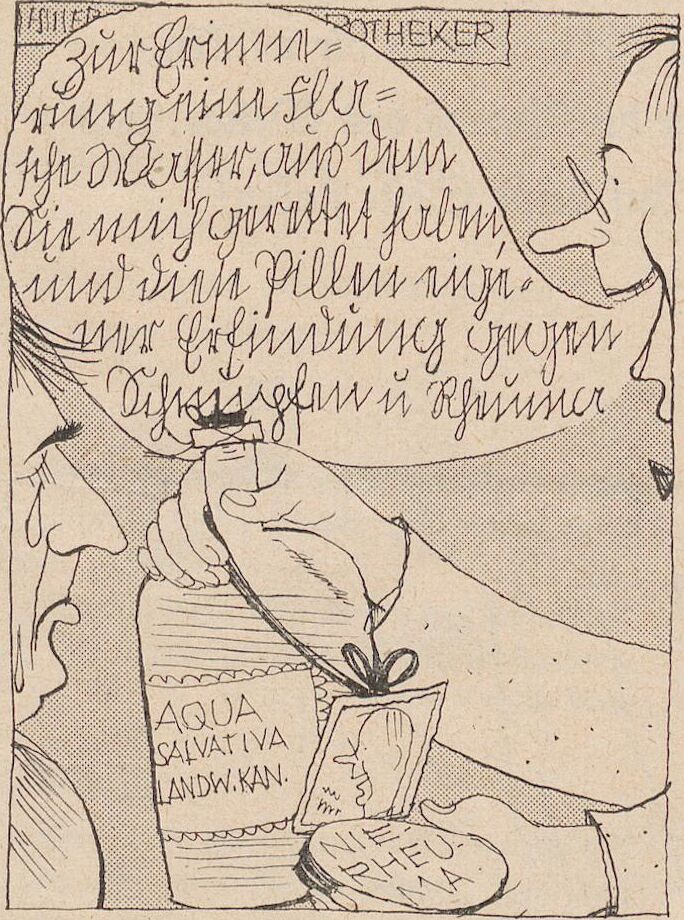 APOTHEKER
Zur Erinne=
rung eine Fla=
sche Wasser, aus dem
Sie mich gerettet haben,
und diese Pillen eige=
ner Erfindung gegen
Schnupfen u Rheuma
AQUA
SALVATIVA
LANDW. KAN.
NIE-
RHEU-
MA